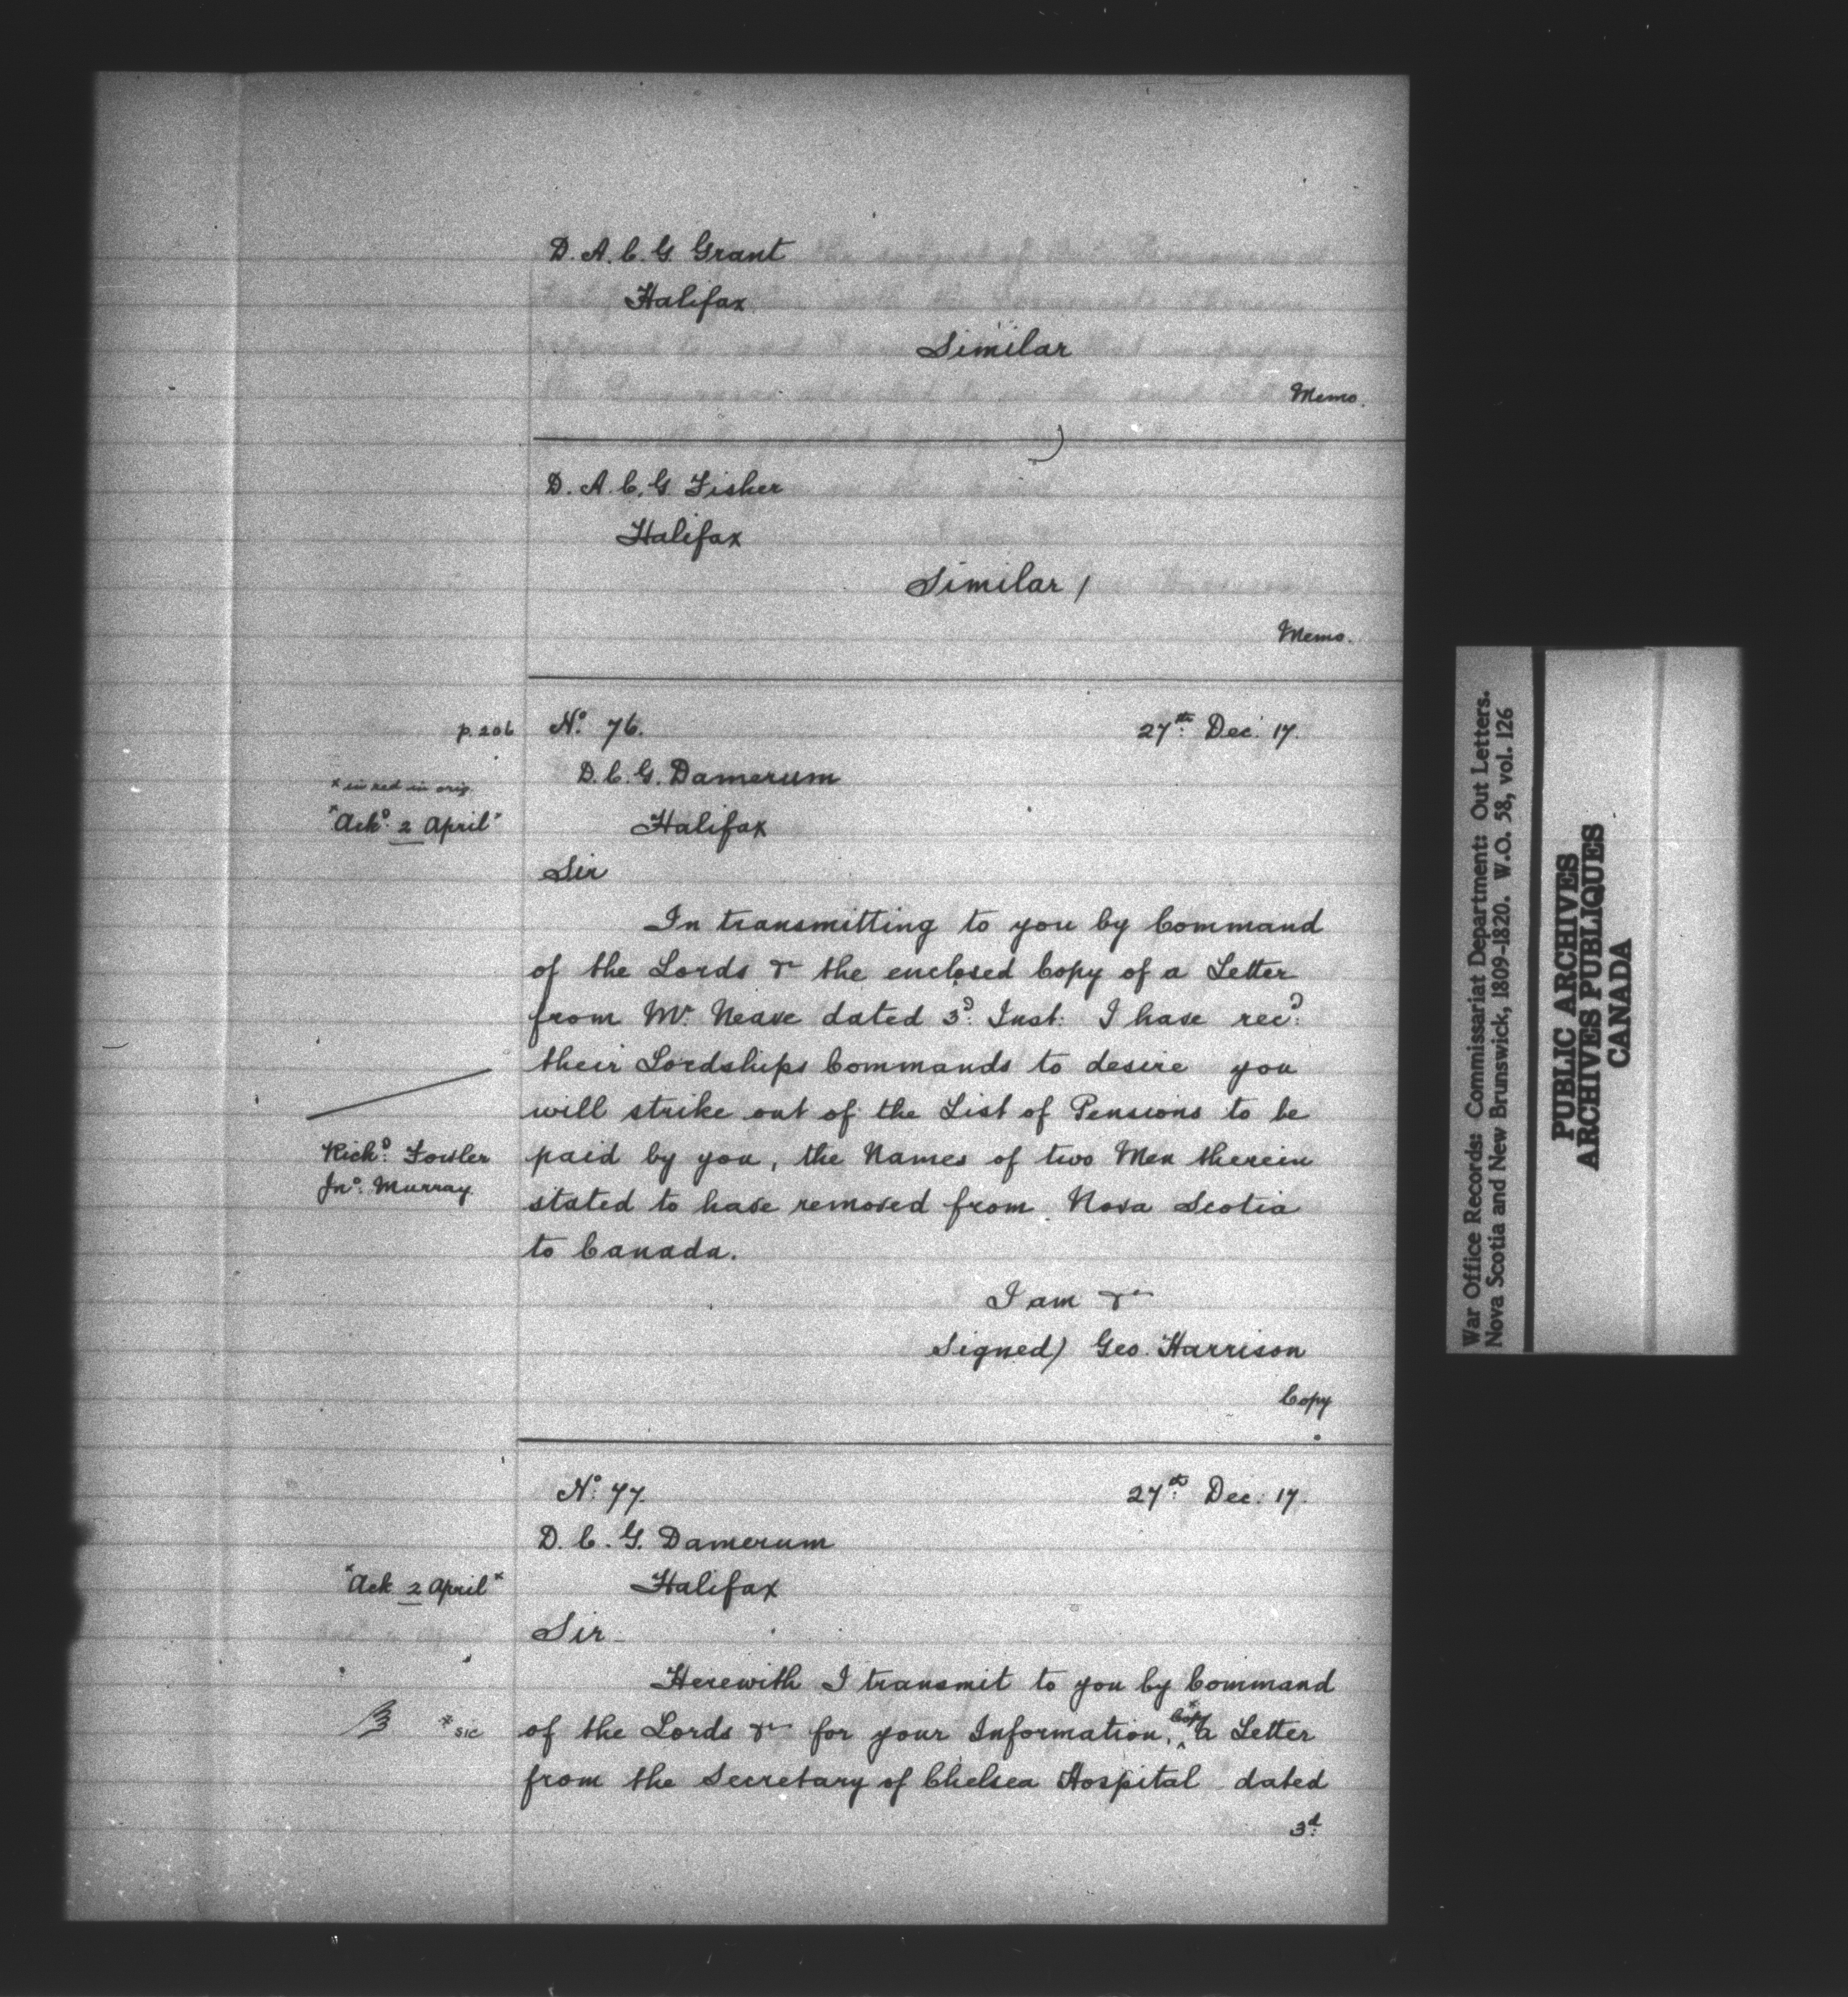 D. A. C. G. Grant
Halifax
Similar
Memo.
D. A. C. G Fisher
Halifax
Similar /
Memo.
p. 206
No. 76.
27th Dec. 17.
* in red in orig.
D. C. G. Damerum
"Ackd. 2 April"
Halifax
Sir
In transmitting to you by Command
of the Lords &c the enclosed Copy of a Letter
from Mr. Neave dated 3d. Inst. I have recd.
their Lordships Commands to desire you
will strike out of the List of Pensions to be
Richd. Fowler
Jno. Murray
paid by you, the Names of two Men therein
stated to have removed from Nova Scotia
to Canada.
I am &c
Signed) Geo. Harrison
Copy
No. 77.
27th Dec. 17.
D. C. G. Damerum
"Ack 2 April"
Halifax
Sir
Herewith I transmit to you by Command
* sic
of the Lords &c for your Information, Copy* a Letter
from the Secretary of Chelsea Hospital dated
3d.
War Office Records: Commissariat Department: Out Letters.
Nova Scotia and New Brunswick, 1809-1820. W.O. 58, vol. 126
PUBLIC ARCHIVES
ARCHIVES PUBLIQUES
CANADA